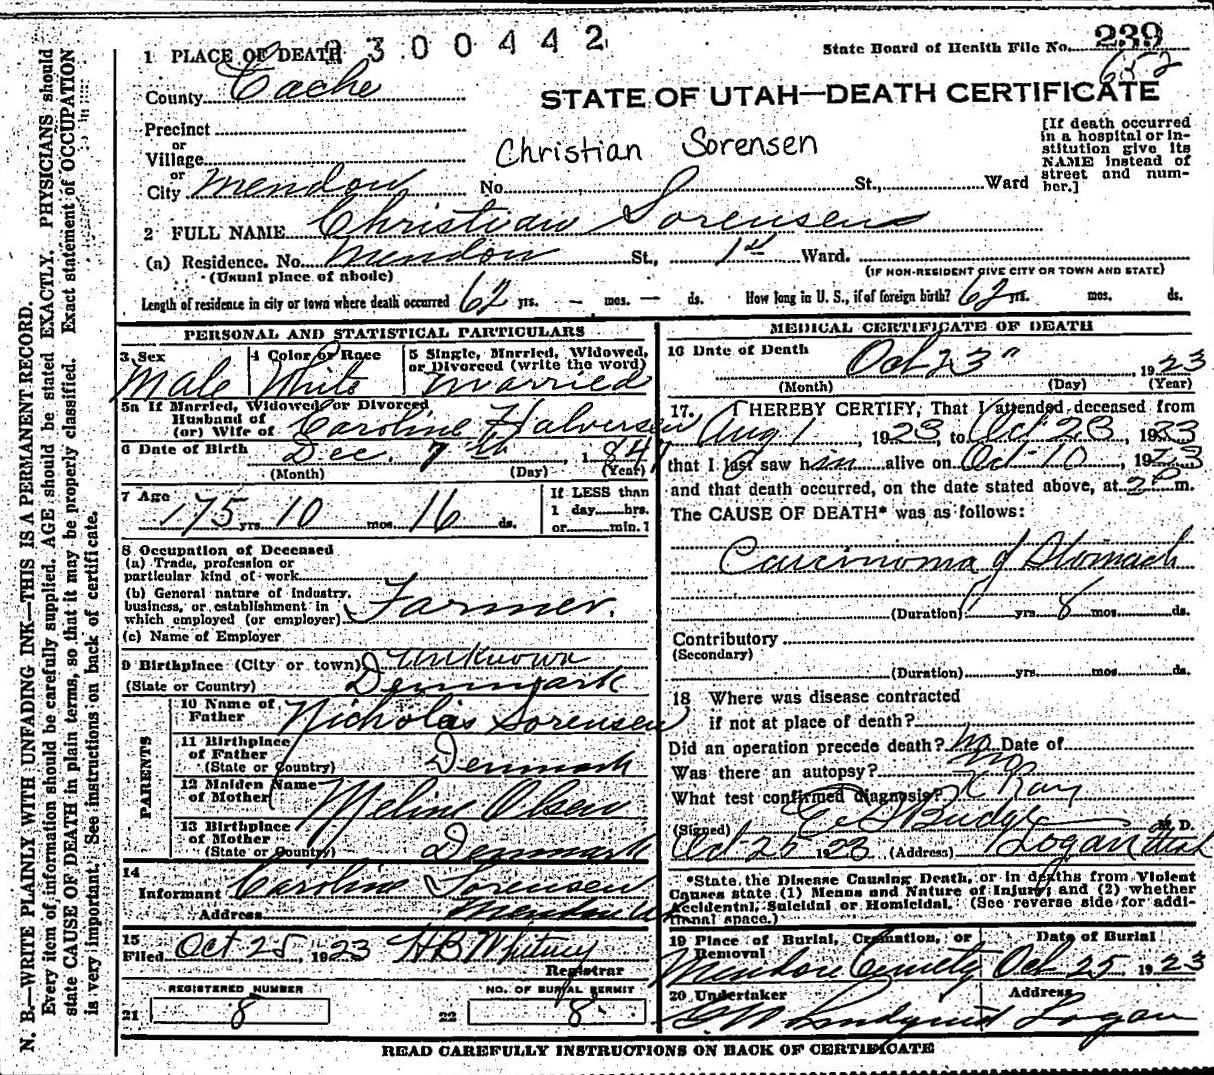 2300442
State Board of Health File No. 239
652
1 PLACE OF DEATH
County Cache
STATE OF UTAH—DEATH CERTIFICATE
Precinct
or
Village
or
City Mendon No. St., Ward
[If death occurred in a hospital or institution give its NAME instead of street and number.]
Christian Sorensen
2 FULL NAME Christian Sorensen
(a) Residence. No. Mendon St., 1st Ward.
(Usual place of abode) (IF NON-RESIDENT GIVE CITY OR TOWN AND STATE)
Length of residence in city or town where death occurred 62 yrs. — mos. — ds. How long in U. S., if of foreign birth? 62 yrs. mos. ds.
PERSONAL AND STATISTICAL PARTICULARS
3 Sex Male
4 Color or Race White
5 Single, Married, Widowed, or Divorced (write the word) Married
5a If Married, Widowed, or Divorced
Husband of
(or) Wife of Caroline Halversen
6 Date of Birth Dec. 7th, 1847
(Month) (Day) (Year)
7 Age 75 yrs. 10 mos. 16 ds.
If LESS than
1 day hrs.
or min.?
8 Occupation of Deceased
(a) Trade, profession or
particular kind of work
(b) General nature of industry,
business, or establishment in
which employed (or employer) Farmer.
(c) Name of Employer
9 Birthplace (City or town) Unknown
(State or Country) Denmark
PARENTS
10 Name of Father Nicholas Sorensen
11 Birthplace of Father (State or Country) Denmark
12 Maiden Name of Mother Meline Olsen
13 Birthplace of Mother (State or Country) Denmark
14
Informant Caroline Sorensen
Address Mendon Ut
15
Filed Oct 25, 1923 H B Whitney
Registrar
REGISTERED NUMBER
21 8
NO. OF BURIAL PERMIT
22 8
MEDICAL CERTIFICATE OF DEATH
16 Date of Death Oct 23", 1923
(Month) (Day) (Year)
17. I HEREBY CERTIFY, That I attended deceased from
Aug 1, 1923, to Oct 23, 1923
that I last saw him alive on Oct 10, 1923
and that death occurred, on the date stated above, at 2P m.
The CAUSE OF DEATH* was as follows:
Carcinoma of Stomach
(Duration) yrs. 8 mos. ds.
Contributory
(Secondary)
(Duration) yrs. mos. ds.
18 Where was disease contracted
if not at place of death?
Did an operation precede death? No Date of
Was there an autopsy? No
What test confirmed diagnosis? X Ray
(Signed) Budge M. D.
Oct 25 1923 (Address) Logan Utah
*State the Disease Causing Death, or in deaths from Violent
Causes state (1) Means and Nature of Injury; and (2) whether
Accidental, Suicidal or Homicidal. (See reverse side for addi-
tional space.)
19 Place of Burial, Cremation, or Removal Date of Burial
Mendon Cemetery Oct 25, 1923
20 Undertaker Address
Lindquist Logan
READ CAREFULLY INSTRUCTIONS ON BACK OF CERTIFICATE
N. B.—WRITE PLAINLY WITH UNFADING INK—THIS IS A PERMANENT RECORD.
Every item of information should be carefully supplied. AGE should be stated EXACTLY. PHYSICIANS should
state CAUSE OF DEATH in plain terms, so that it may be properly classified. Exact statement of OCCUPATION
is very important. See instructions on back of certificate.